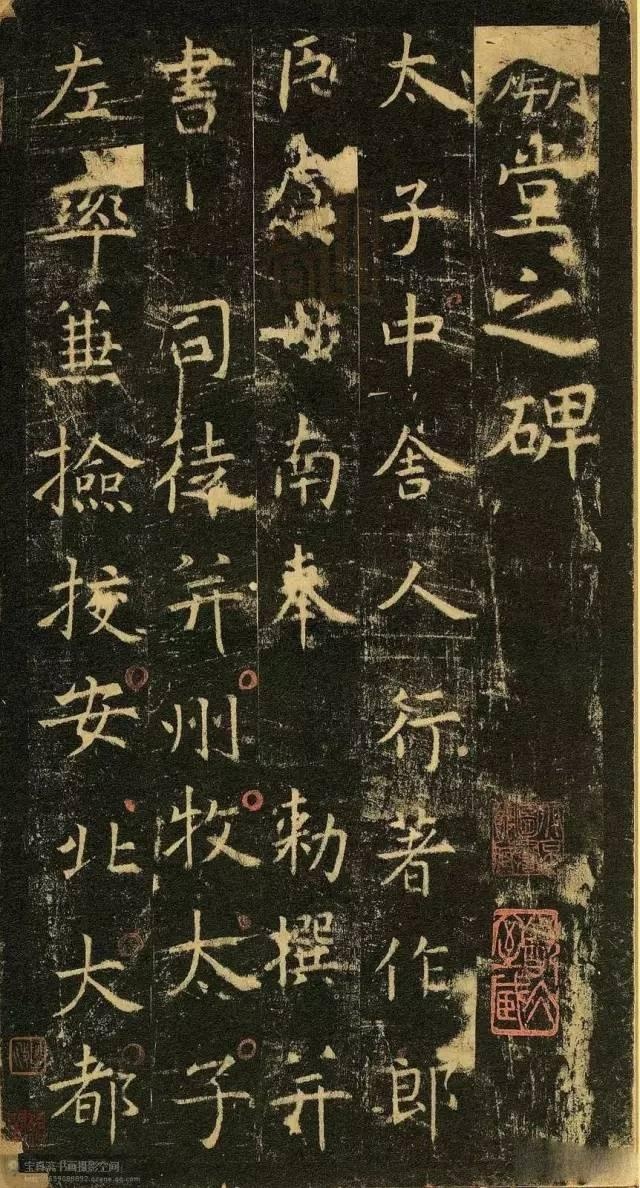 堂之碑
太子中舍人行著作郎
臣虞世南奉 勅撰并
書 司徒并州牧太子
左率兼撿挍安北大都
宝真斋书画摄影空间